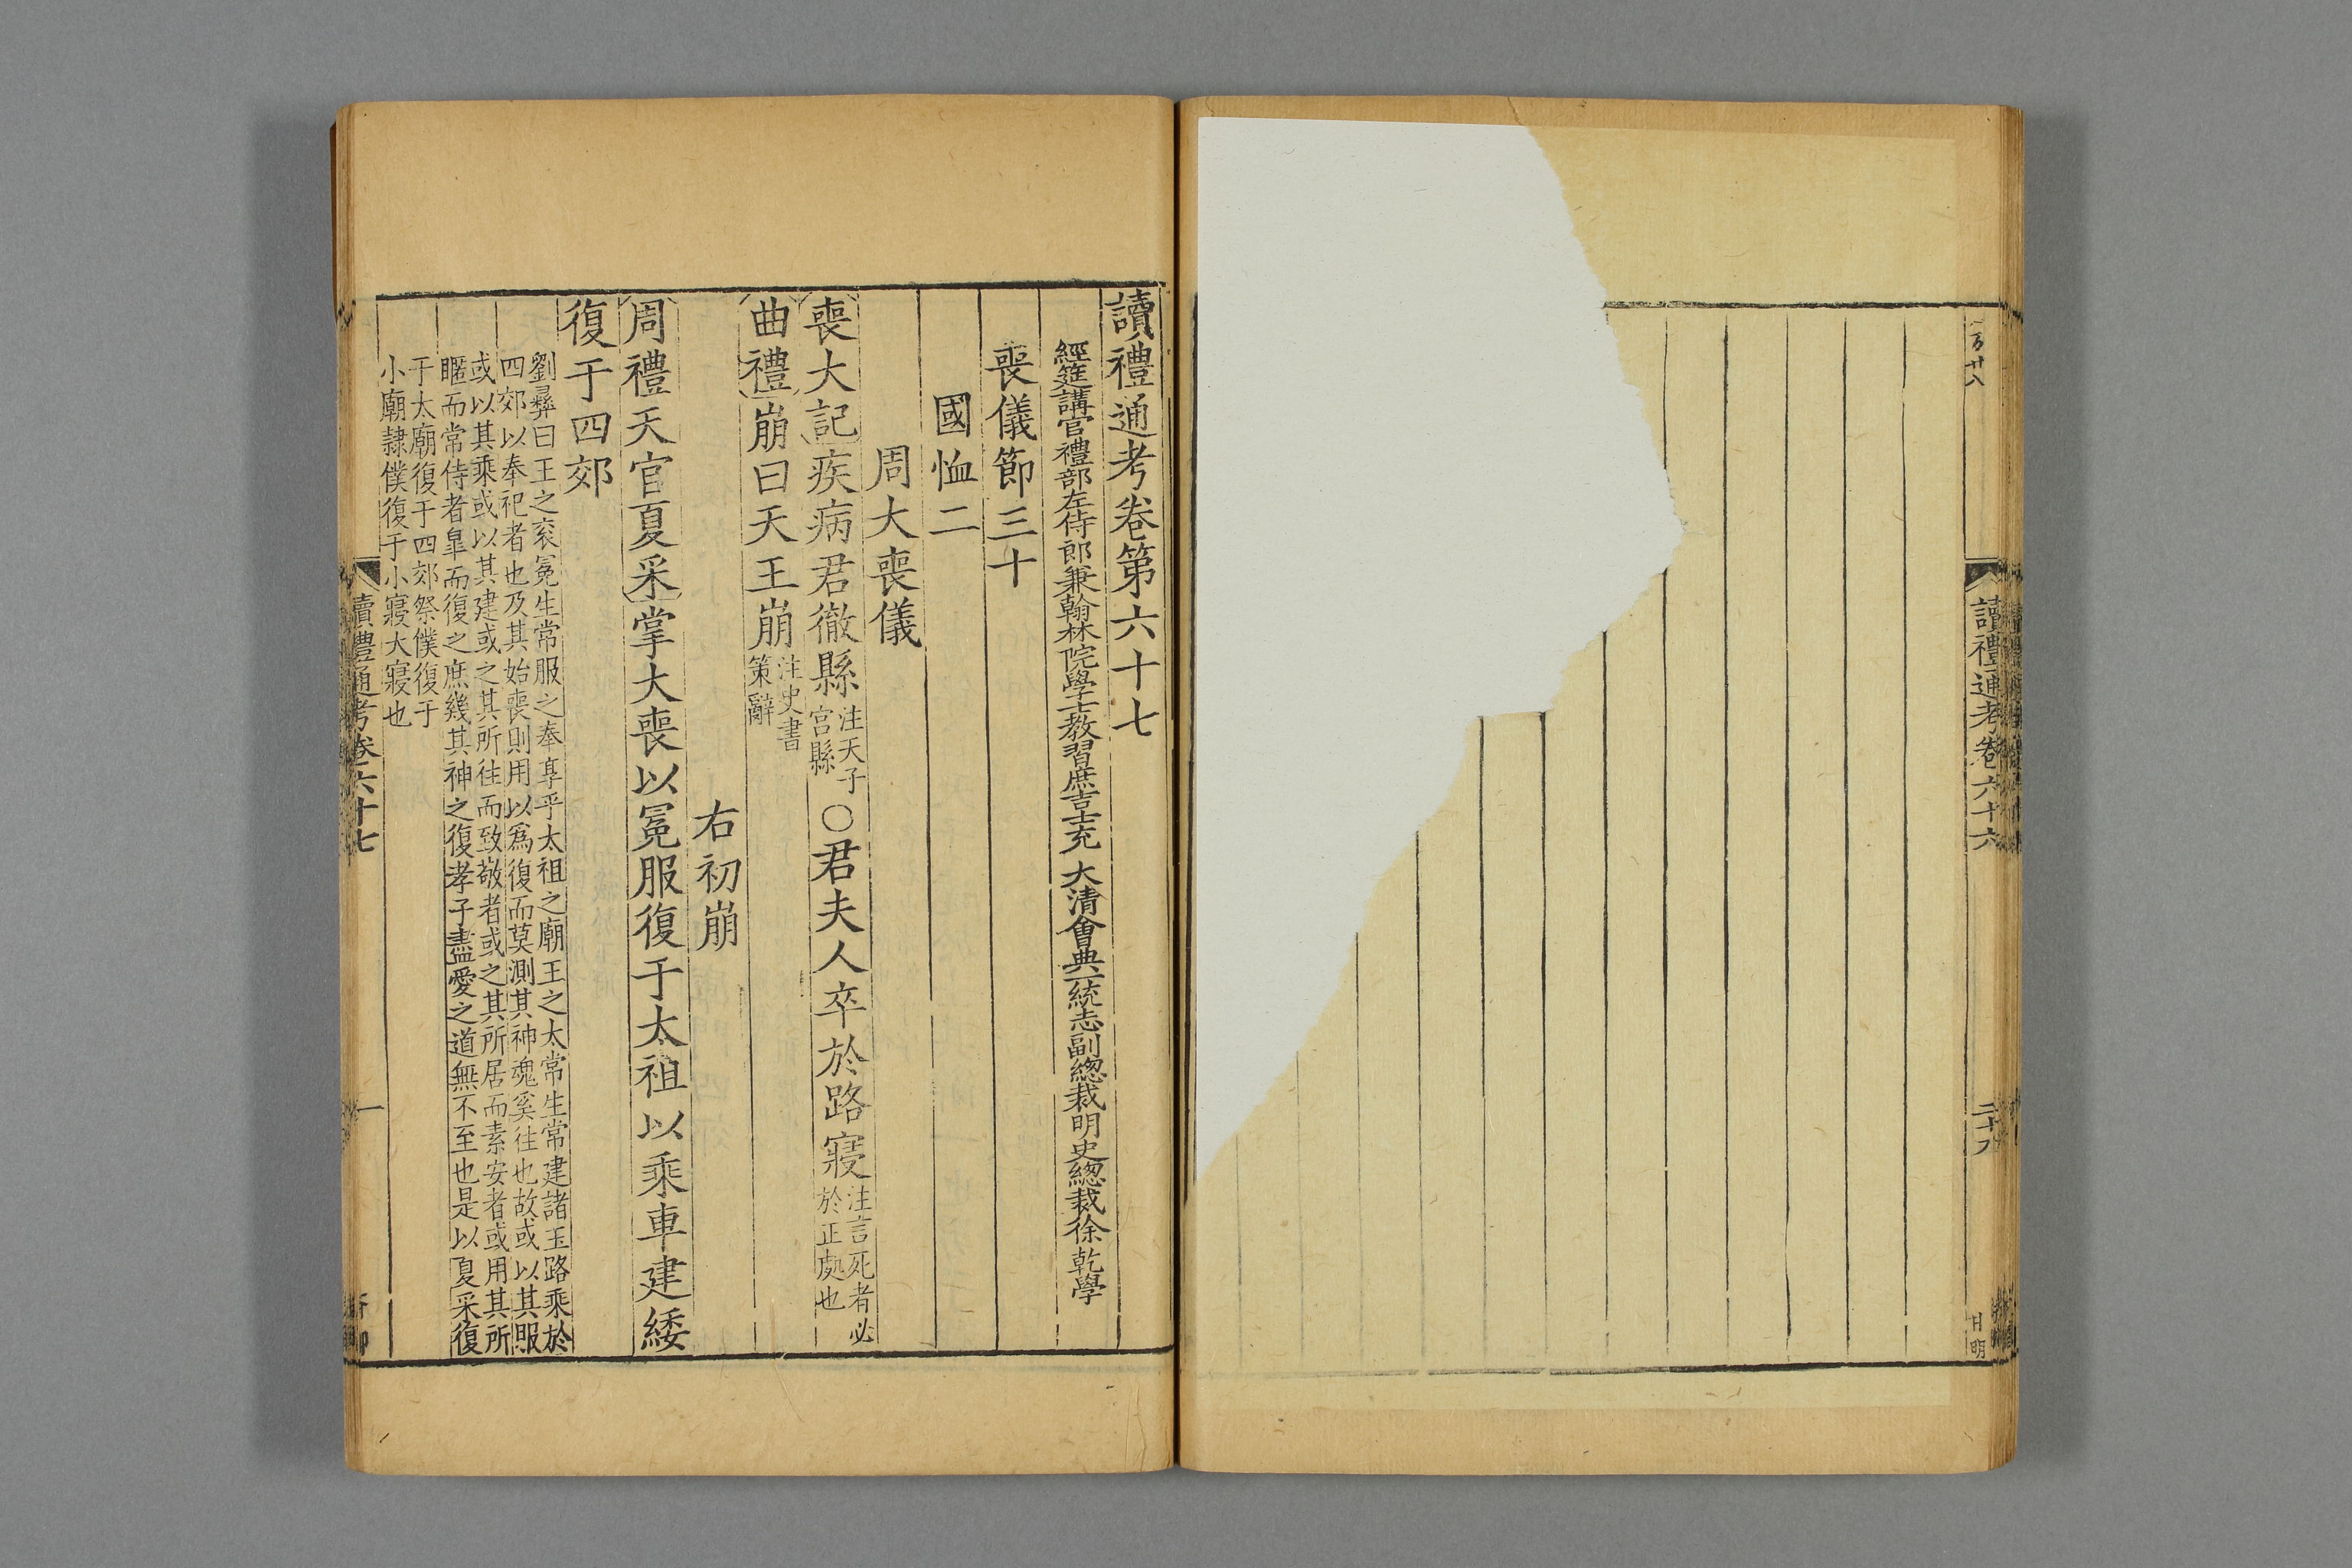 讀禮通考卷六十六
日明
讀禮通考卷第六十七
經筵講官禮部左侍郎兼翰林院學士教習庶吉士充 大清會典一統志副總裁明史總裁徐乾學
喪儀節三十
國恤二
周大喪儀
喪大記疾病君徹縣注天子宮縣○君夫人卒於路寢注言死者必於正處也
曲禮崩曰天王崩注史書策辭
右初崩
周禮天官夏采掌大喪以冕服復于太祖以乘車建綏
復于四郊
劉彞曰王之衮冕生常服之奉享乎太祖之廟王之太常生常建諸玉路乘於
四郊以奉祀者也及其始喪則用以爲復而莫測其神魂奚往也故或以其服
或以其乘或以其建或之其所往而致敬者或之其所居而素安者或用其所
暱而常侍者臯而復之庶幾其神之復孝子盡愛之道無不至也是以夏采復
于太廟復于四郊祭僕復于
小廟隷僕復于小寢大寢也
讀禮通考卷六十七
一